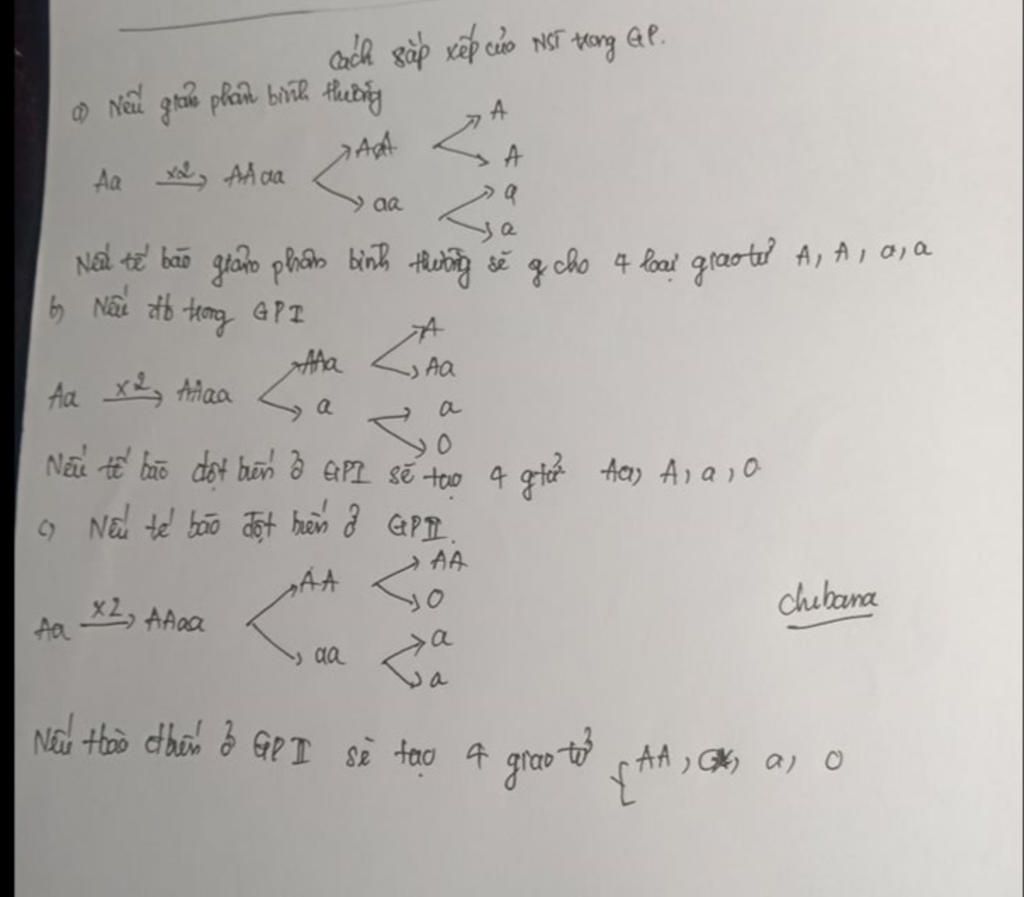 Cách sắp xếp của NST trong GP.
a) Nếu giảm phân bình thường
Aa x2→ AAaa AA A
A
aa a
a
Nếu tế bào giảm phân bình thường sẽ cho 4 loại giao tử A, A, a, a
b) Nếu đb trong GPI
Aa x2→ AAaa AAa A
Aa
a a
O
Nếu tế bào đột biến ở GPI sẽ tạo 4 gtử Aa, A, a, O
c) Nếu tế bào đột biến ở GPII.
Aa x2→ AAaa AA AA
O
aa a
a
chibana
Nếu tbào đbiến ở GPII sẽ tạo 4 giao tử { AA, a, O